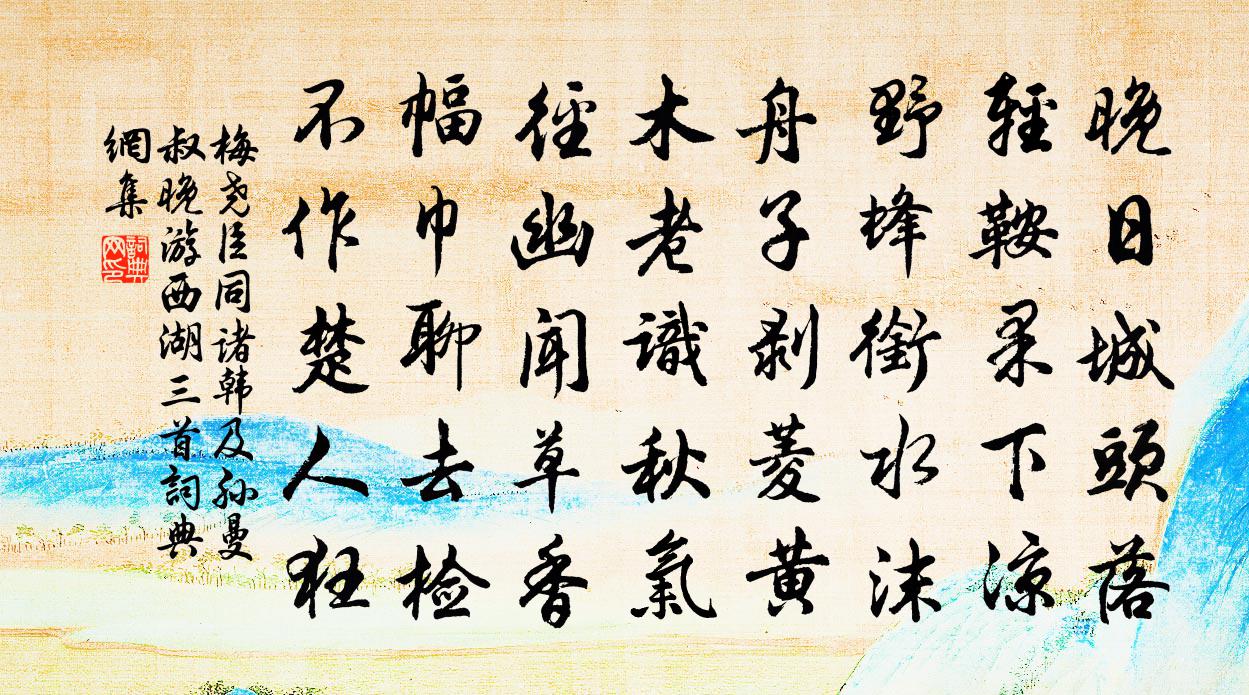 晚日城頭落
輕鞍果下涼
野蜂銜水沫
舟子剥菱黄
木老識秋氣
徑幽聞草香
幅巾聊去检
不作楚人狂
梅尧臣同諸韓及孫曼
叔晚游西湖三首詞典
網集
詞典
网印